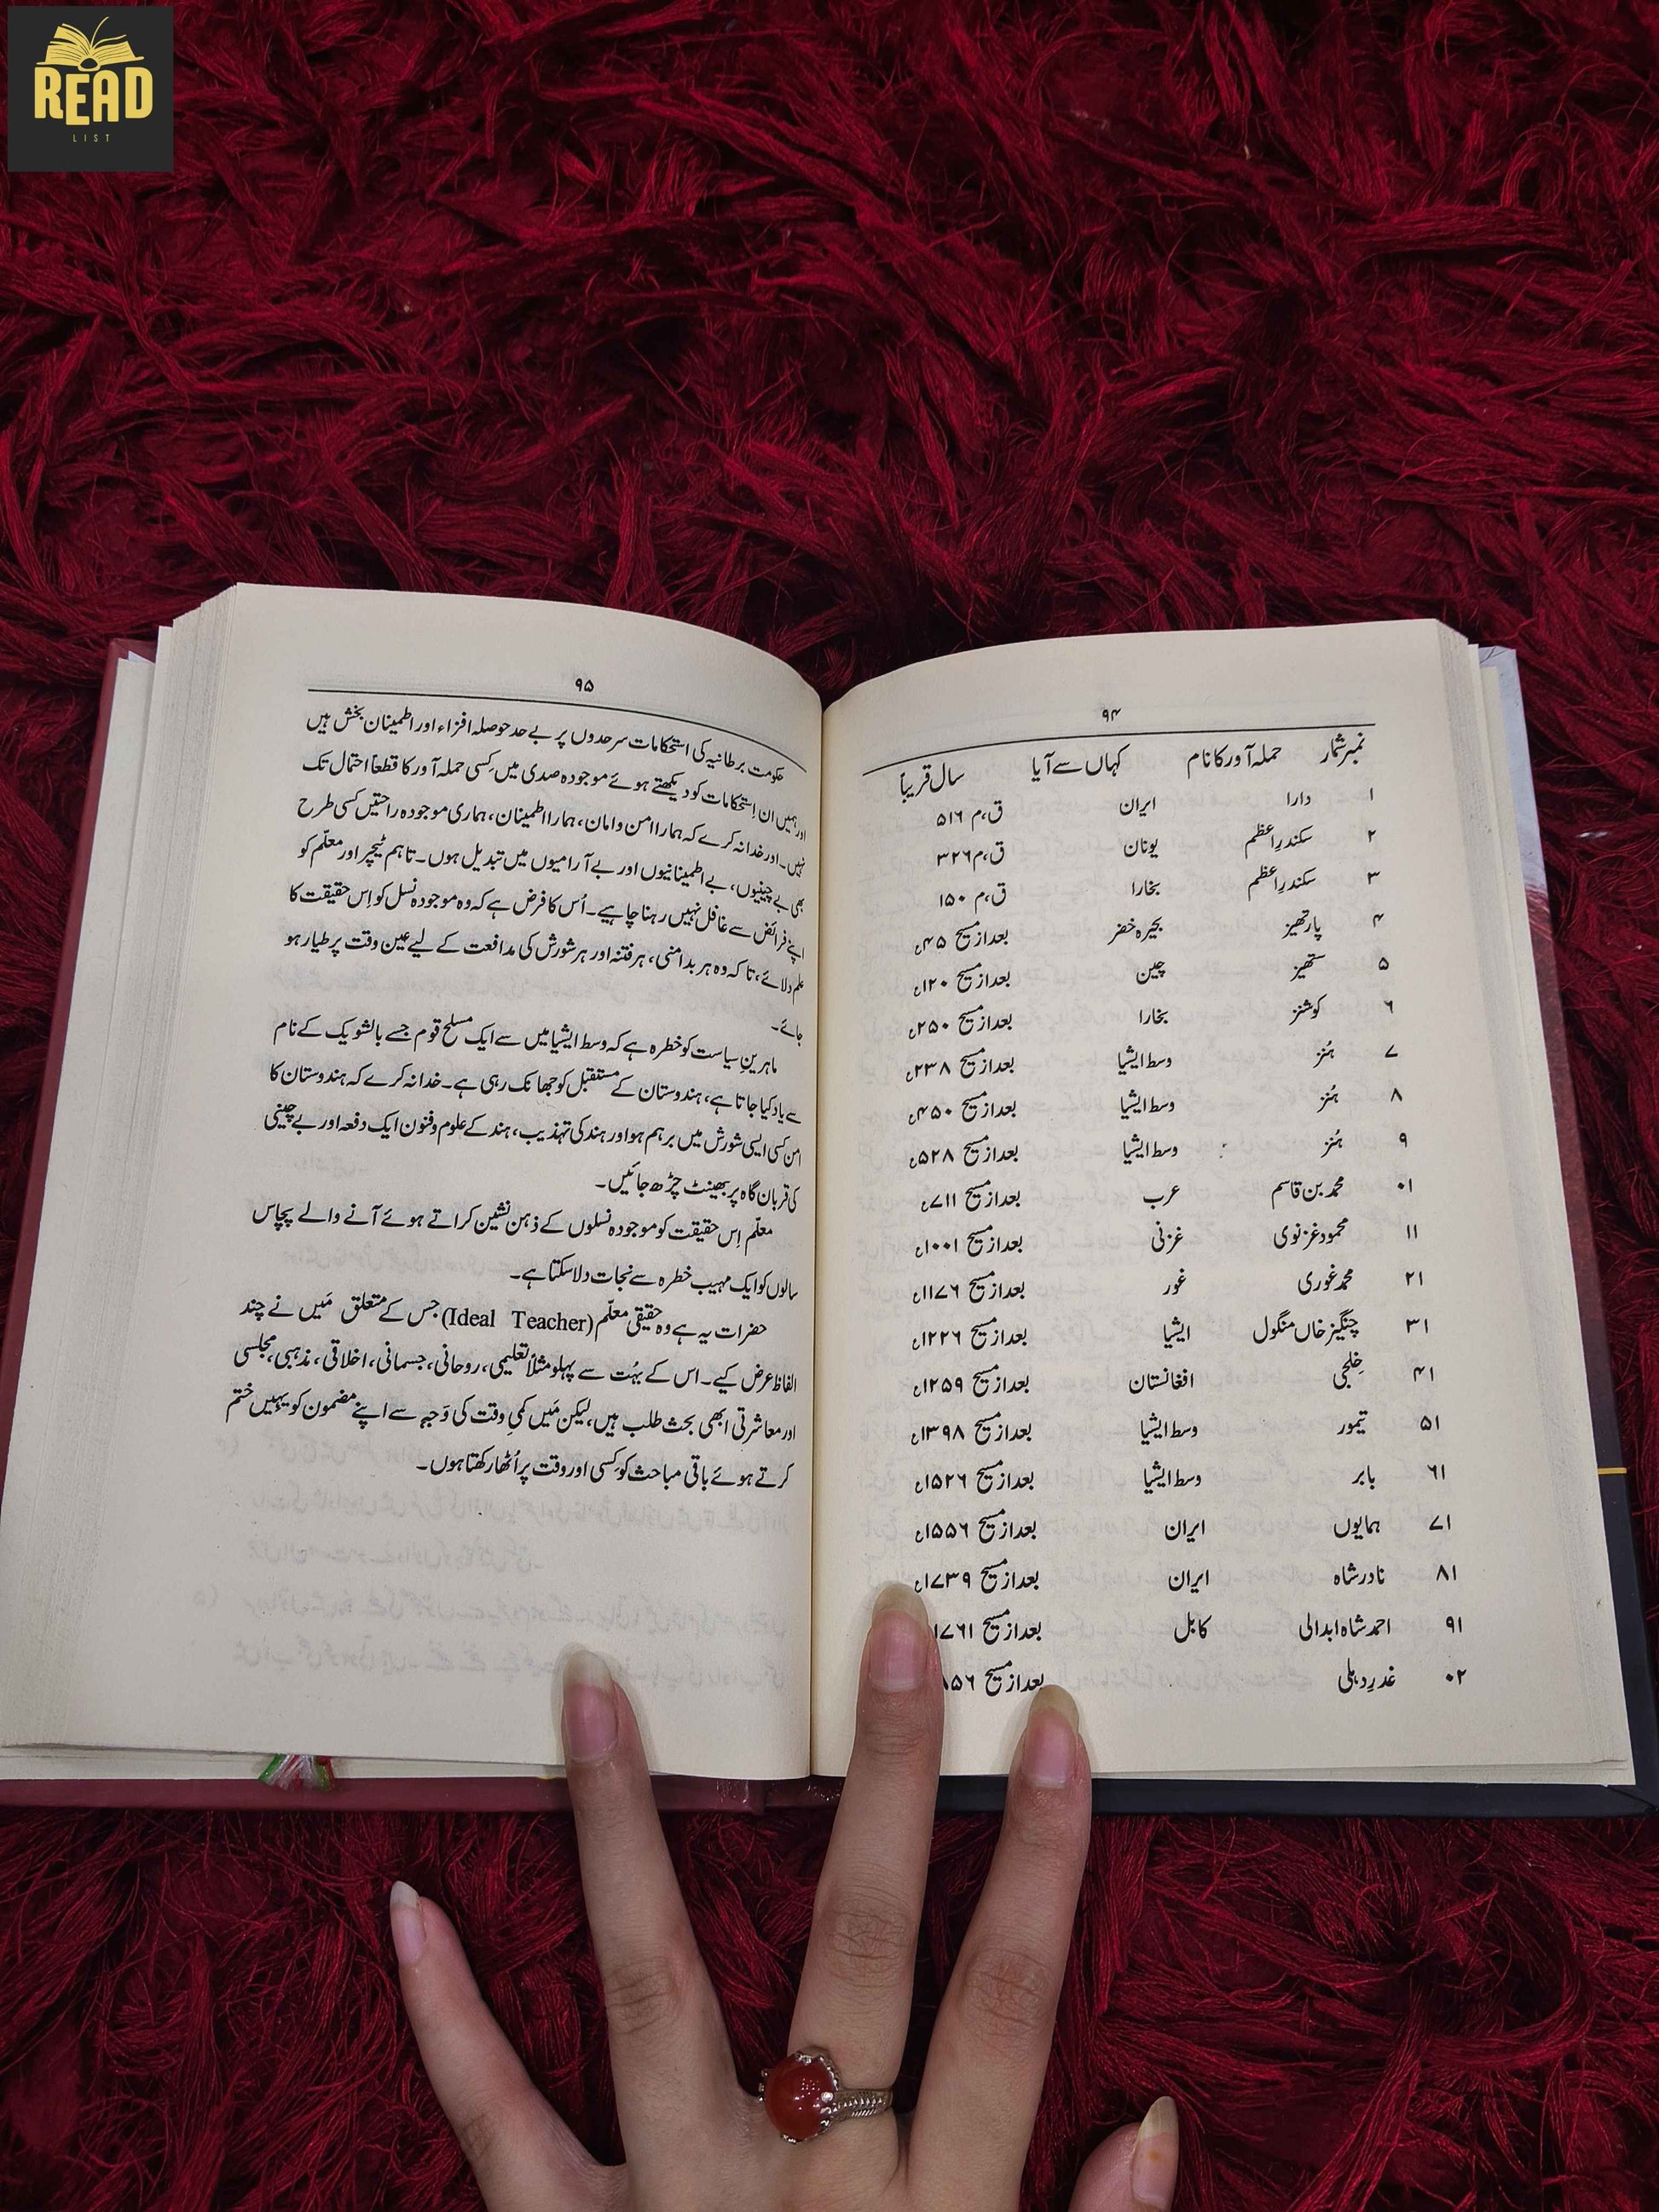 READ
LIST
۹۴
نمبر شمار حملہ آور کا نام کہاں سے آیا سال قریباً
۱ دارا ایران ق،م ۵۱۶
۲ سکندرِ اعظم یونان ق،م ۳۲۶
۳ سکندرِ اعظم بخارا ق،م ۱۵۰
۴ پارتھیز بحیرہ خضر بعد از مسیح ۴۵ء
۵ ستھیز چین بعد از مسیح ۱۲۰ء
۶ کوشنز بخارا بعد از مسیح ۲۵۰ء
۷ ہُنز وسط ایشیا بعد از مسیح ۲۳۸ء
۸ ہُنز وسط ایشیا بعد از مسیح ۴۵۰ء
۹ ہُنز وسط ایشیا بعد از مسیح ۵۲۸ء
۰۱ محمد بن قاسم عرب بعد از مسیح ۷۱۱ء
۱۱ محمود غزنوی غزنی بعد از مسیح ۱۰۰۱ء
۲۱ محمد غوری غور بعد از مسیح ۱۱۷۶ء
۳۱ چنگیز خاں منگول ایشیا بعد از مسیح ۱۲۲۶ء
۴۱ خِلجی افغانستان بعد از مسیح ۱۲۵۹ء
۵۱ تیمور وسط ایشیا بعد از مسیح ۱۳۹۸ء
۶۱ بابر وسط ایشیا بعد از مسیح ۱۵۲۶ء
۷۱ ہمایوں ایران بعد از مسیح ۱۵۵۶ء
۸۱ نادر شاہ ایران بعد از مسیح ۱۷۳۹ء
۹۱ احمد شاہ ابدالی کابل بعد از مسیح ۱۷۶۱
۰۲ غدرِ دہلی بعد از مسیح ۸۵۶
۹۵
حکومت برطانیہ کی استحکامات سرحدوں پر بے حد حوصلہ افزاء اور اطمینان بخش ہیں
اور ہمیں ان اِستحکامات کو دیکھتے ہوئے موجودہ صدی میں کسی حملہ آور کا قطعاً احتمال تک
نہیں۔ اور خدا نہ کرے کہ ہمارا امن و امان، ہمارا اطمینان، ہماری موجودہ راحتیں کسی طرح
بھی بے چینیوں، بے اطمینانیوں اور بے آرامیوں میں تبدیل ہوں۔ تاہم ٹیچر اور معلّم کو
اپنے فرائض سے غافل نہیں رہنا چاہیے۔ اُس کا فرض ہے کہ وہ موجودہ نسل کو اِس حقیقت کا
علم دلائے، تا کہ وہ ہر بدامنی، ہر فتنہ اور ہر شورش کی مدافعت کے لیے عین وقت پر طیار ہو
جائے۔
ماہرینِ سیاست کو خطرہ ہے کہ وسط ایشیا میں سے ایک مسلح قوم جسے بالشویک کے نام
سے یاد کیا جاتا ہے، ہندوستان کے مستقبل کو جھانک رہی ہے۔ خدا نہ کرے کہ ہندوستان کا
امن کسی ایسی شورش میں برہم ہو اور ہند کی تہذیب، ہند کے علوم و فنون ایک دفعہ اور بے چینی
کی قربان گاہ پر بھینٹ چڑھ جائیں۔
معلّم اِس حقیقت کو موجودہ نسلوں کے ذہن نشین کراتے ہوئے آنے والے پچاس
سالوں کو ایک مہیب خطرہ سے نجات دلا سکتا ہے۔
حضرات یہ ہے وہ حقیقی معلّم (Ideal Teacher) جس کے متعلق مَیں نے چند
الفاظ عرض کیے۔ اس کے بہُت سے پہلو مثلاً تعلیمی، روحانی، جسمانی، اخلاقی، مذہبی، مجلسی
اور معاشرتی ابھی بحث طلب ہیں، لیکن مَیں کمیِ وقت کی وَجہِ سے اپنے مضمون کو یہیں ختم
کرتے ہوئے باقی مباحث کو کسی اور وقت پر اُٹھا رکھتا ہوں۔